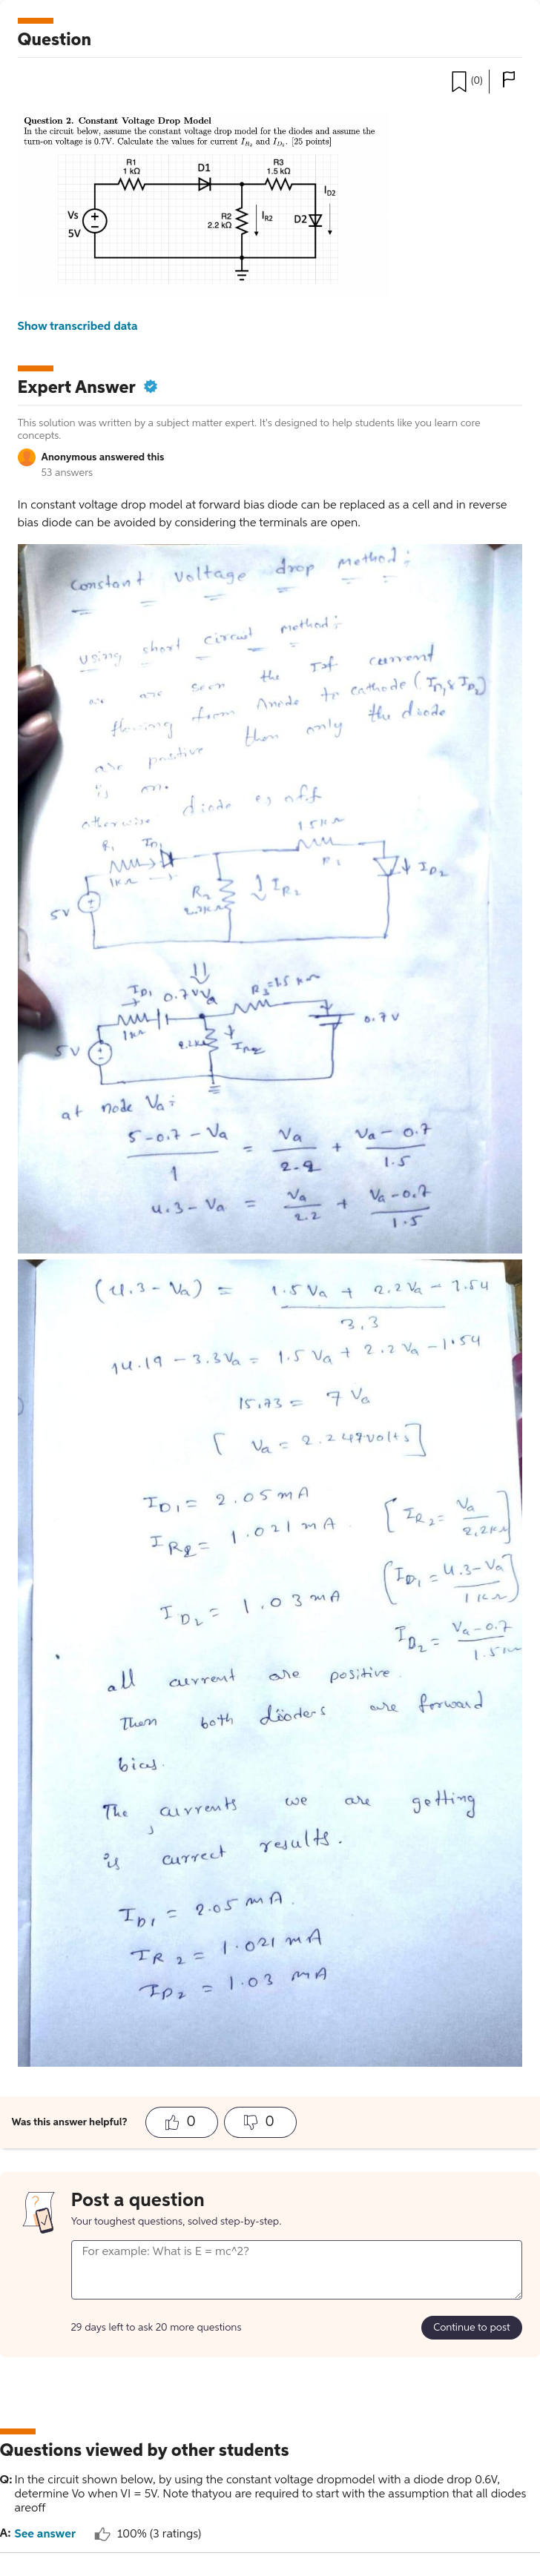 Question
(0)
Question 2. Constant Voltage Drop Model
In the circuit below, assume the constant voltage drop model for the diodes and assume the
turn-on voltage is 0.7V. Calculate the values for current I_R2 and I_D2. [25 points]
R1
1 kΩ
D1
R3
1.5 kΩ
ID2
Vs
5V
R2
2.2 kΩ
IR2
D2
Show transcribed data
Expert Answer
This solution was written by a subject matter expert. It's designed to help students like you learn core
concepts.
Anonymous answered this
53 answers
In constant voltage drop model at forward bias diode can be replaced as a cell and in reverse
bias diode can be avoided by considering the terminals are open.
constant voltage drop method:
using short circuit method:
are seen the If current
flowing from Anode to cathode (ID1 & ID2)
are positive then only the diode
is on.
otherwise diode is off
R1 ID1
1KΩ
5V
R2
IR2
ID2
ID1 0.7V Va R3=1.5 kΩ
1KΩ
5V
IR2
0.7V
at node Va:
5-0.7-Va / 1 = Va / 2.2 + Va-0.7 / 1.5
4.3-Va = Va / 2.2 + Va-0.7 / 1.5
(4.3-Va) = 1.5Va + 2.2Va - 1.54 / 3.3
14.19 - 3.3Va = 1.5Va + 2.2Va - 1.54
15.73 = 7Va
[Va = 2.247volts]
ID1 = 2.05mA
IR2 = 1.021mA [IR2 = Va / 2.2KΩ]
(ID1 = 4.3-Va / 1KΩ)
ID2 = 1.03mA
ID2 = Va-0.7 / 1.5KΩ
all current are positive
Then both diodes are forward
bias.
The currents we are getting
is currect results.
ID1 = 2.05mA.
IR2 = 1.021mA
ID2 = 1.03mA
Was this answer helpful?
0
0
Post a question
Your toughest questions, solved step-by-step.
For example: What is E = mc^2?
29 days left to ask 20 more questions
Continue to post
Questions viewed by other students
Q: In the circuit shown below, by using the constant voltage dropmodel with a diode drop 0.6V,
determine Vo when VI = 5V. Note thatyou are required to start with the assumption that all diodes
areoff
A: See answer
100% (3 ratings)